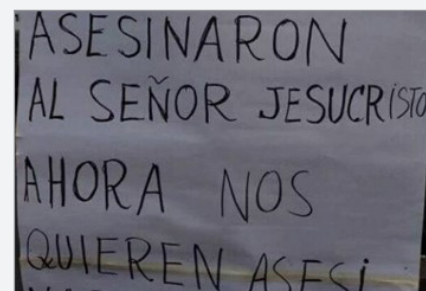 ASESINARON
AL SEÑOR JESUCRiSTO
AHORA NOS
QUIEREN ASESi